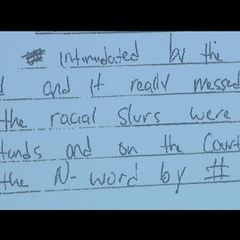 # Intimidated by the
d and it really messed
the racial slurs were
tands and on the Court
the N-word by #